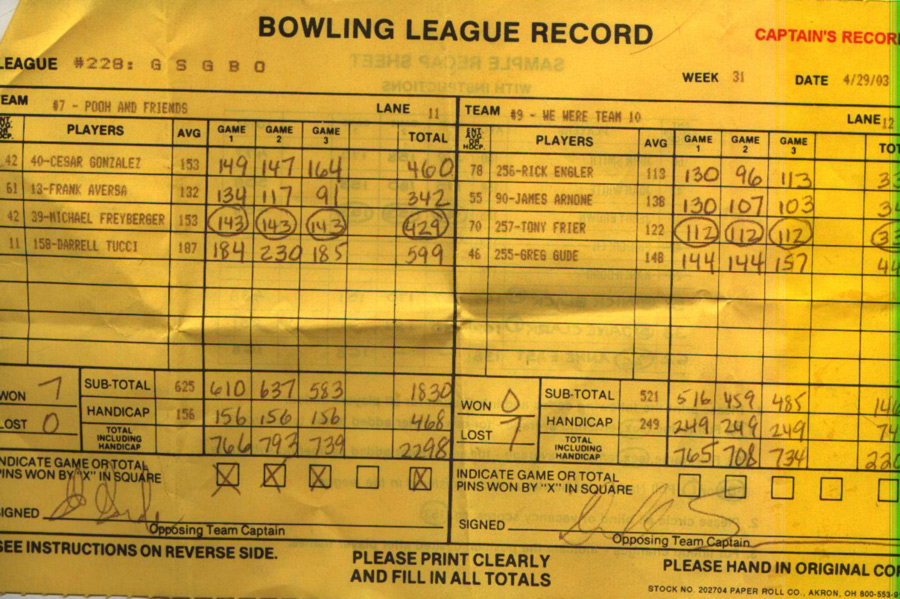 BOWLING LEAGUE RECORD
CAPTAIN'S RECOR
LEAGUE #228: G S G B O
WEEK 31 DATE 4/29/03
TEAM #7 - POOH AND FRIENDS LANE 11
PLAYERS AVG GAME 1 GAME 2 GAME 3 TOTAL
42 40-CESAR GONZALEZ 153 149 147 164 460
61 13-FRANK AVERSA 132 134 117 91 342
42 39-MICHAEL FREYBERGER 153 143 143 143 429
11 158-DARRELL TUCCI 187 184 230 185 599
WON 7 SUB-TOTAL 625 610 637 583 1830
LOST 0 HANDICAP 156 156 156 156 468
TOTAL INCLUDING HANDICAP 766 793 739 2298
INDICATE GAME OR TOTAL
PINS WON BY "X" IN SQUARE X X X X
SIGNED
Opposing Team Captain
TEAM #9 - WE WERE TEAM 10 LANE 12
INT. AVG. OR HDCP. PLAYERS AVG GAME 1 GAME 2 GAME 3 TOT
78 256-RICK ENGLER 113 130 96 113 33
55 90-JAMES ARNONE 138 130 107 103 34
70 257-TONY FRIER 122 112 112 112 33
46 255-GREG GUDE 148 144 144 157 44
WON 0 SUB-TOTAL 521 516 459 485 146
LOST 7 HANDICAP 249 249 249 249 74
TOTAL INCLUDING HANDICAP 765 708 734 220
INDICATE GAME OR TOTAL
PINS WON BY "X" IN SQUARE
SIGNED
Opposing Team Captain
SEE INSTRUCTIONS ON REVERSE SIDE.
PLEASE PRINT CLEARLY
AND FILL IN ALL TOTALS
PLEASE HAND IN ORIGINAL COP
STOCK NO. 202704 PAPER ROLL CO., AKRON, OH 800-553-9